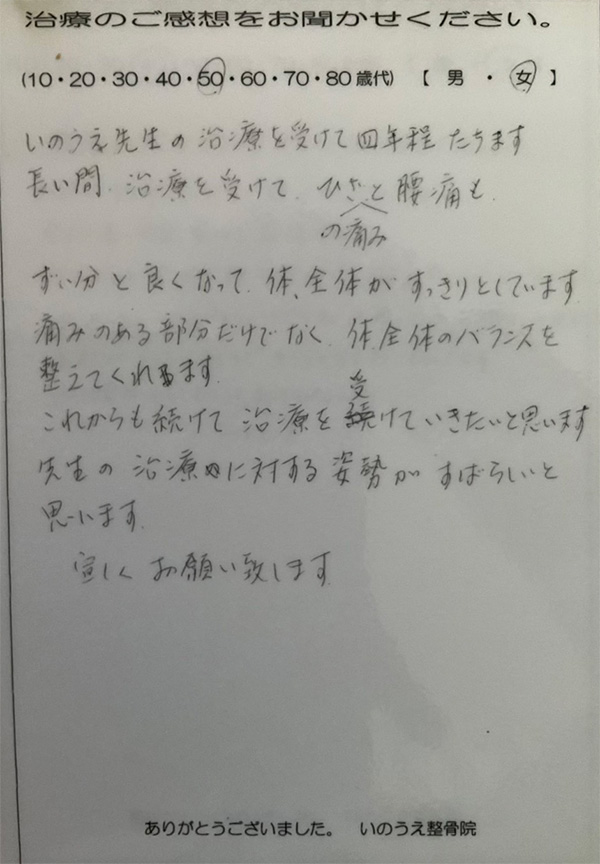 治療のご感想をお聞かせください。
(10・20・30・40・50・60・70・80歳代) 【 男 ・ 女 】
いのうえ先生の治療を受けて四年程たちます
長い間、治療を受けて、ひざと腰痛も
の痛み
ずい分と良くなって、体、全体がすっきりとしています
痛みのある部分だけでなく、体全体のバランスを
整えてくれます。
受
これからも続けて治療を続けていきたいと思います
先生の治療に対する姿勢がすばらしいと
思います。
宜しくお願い致します
ありがとうございました。 いのうえ整骨院